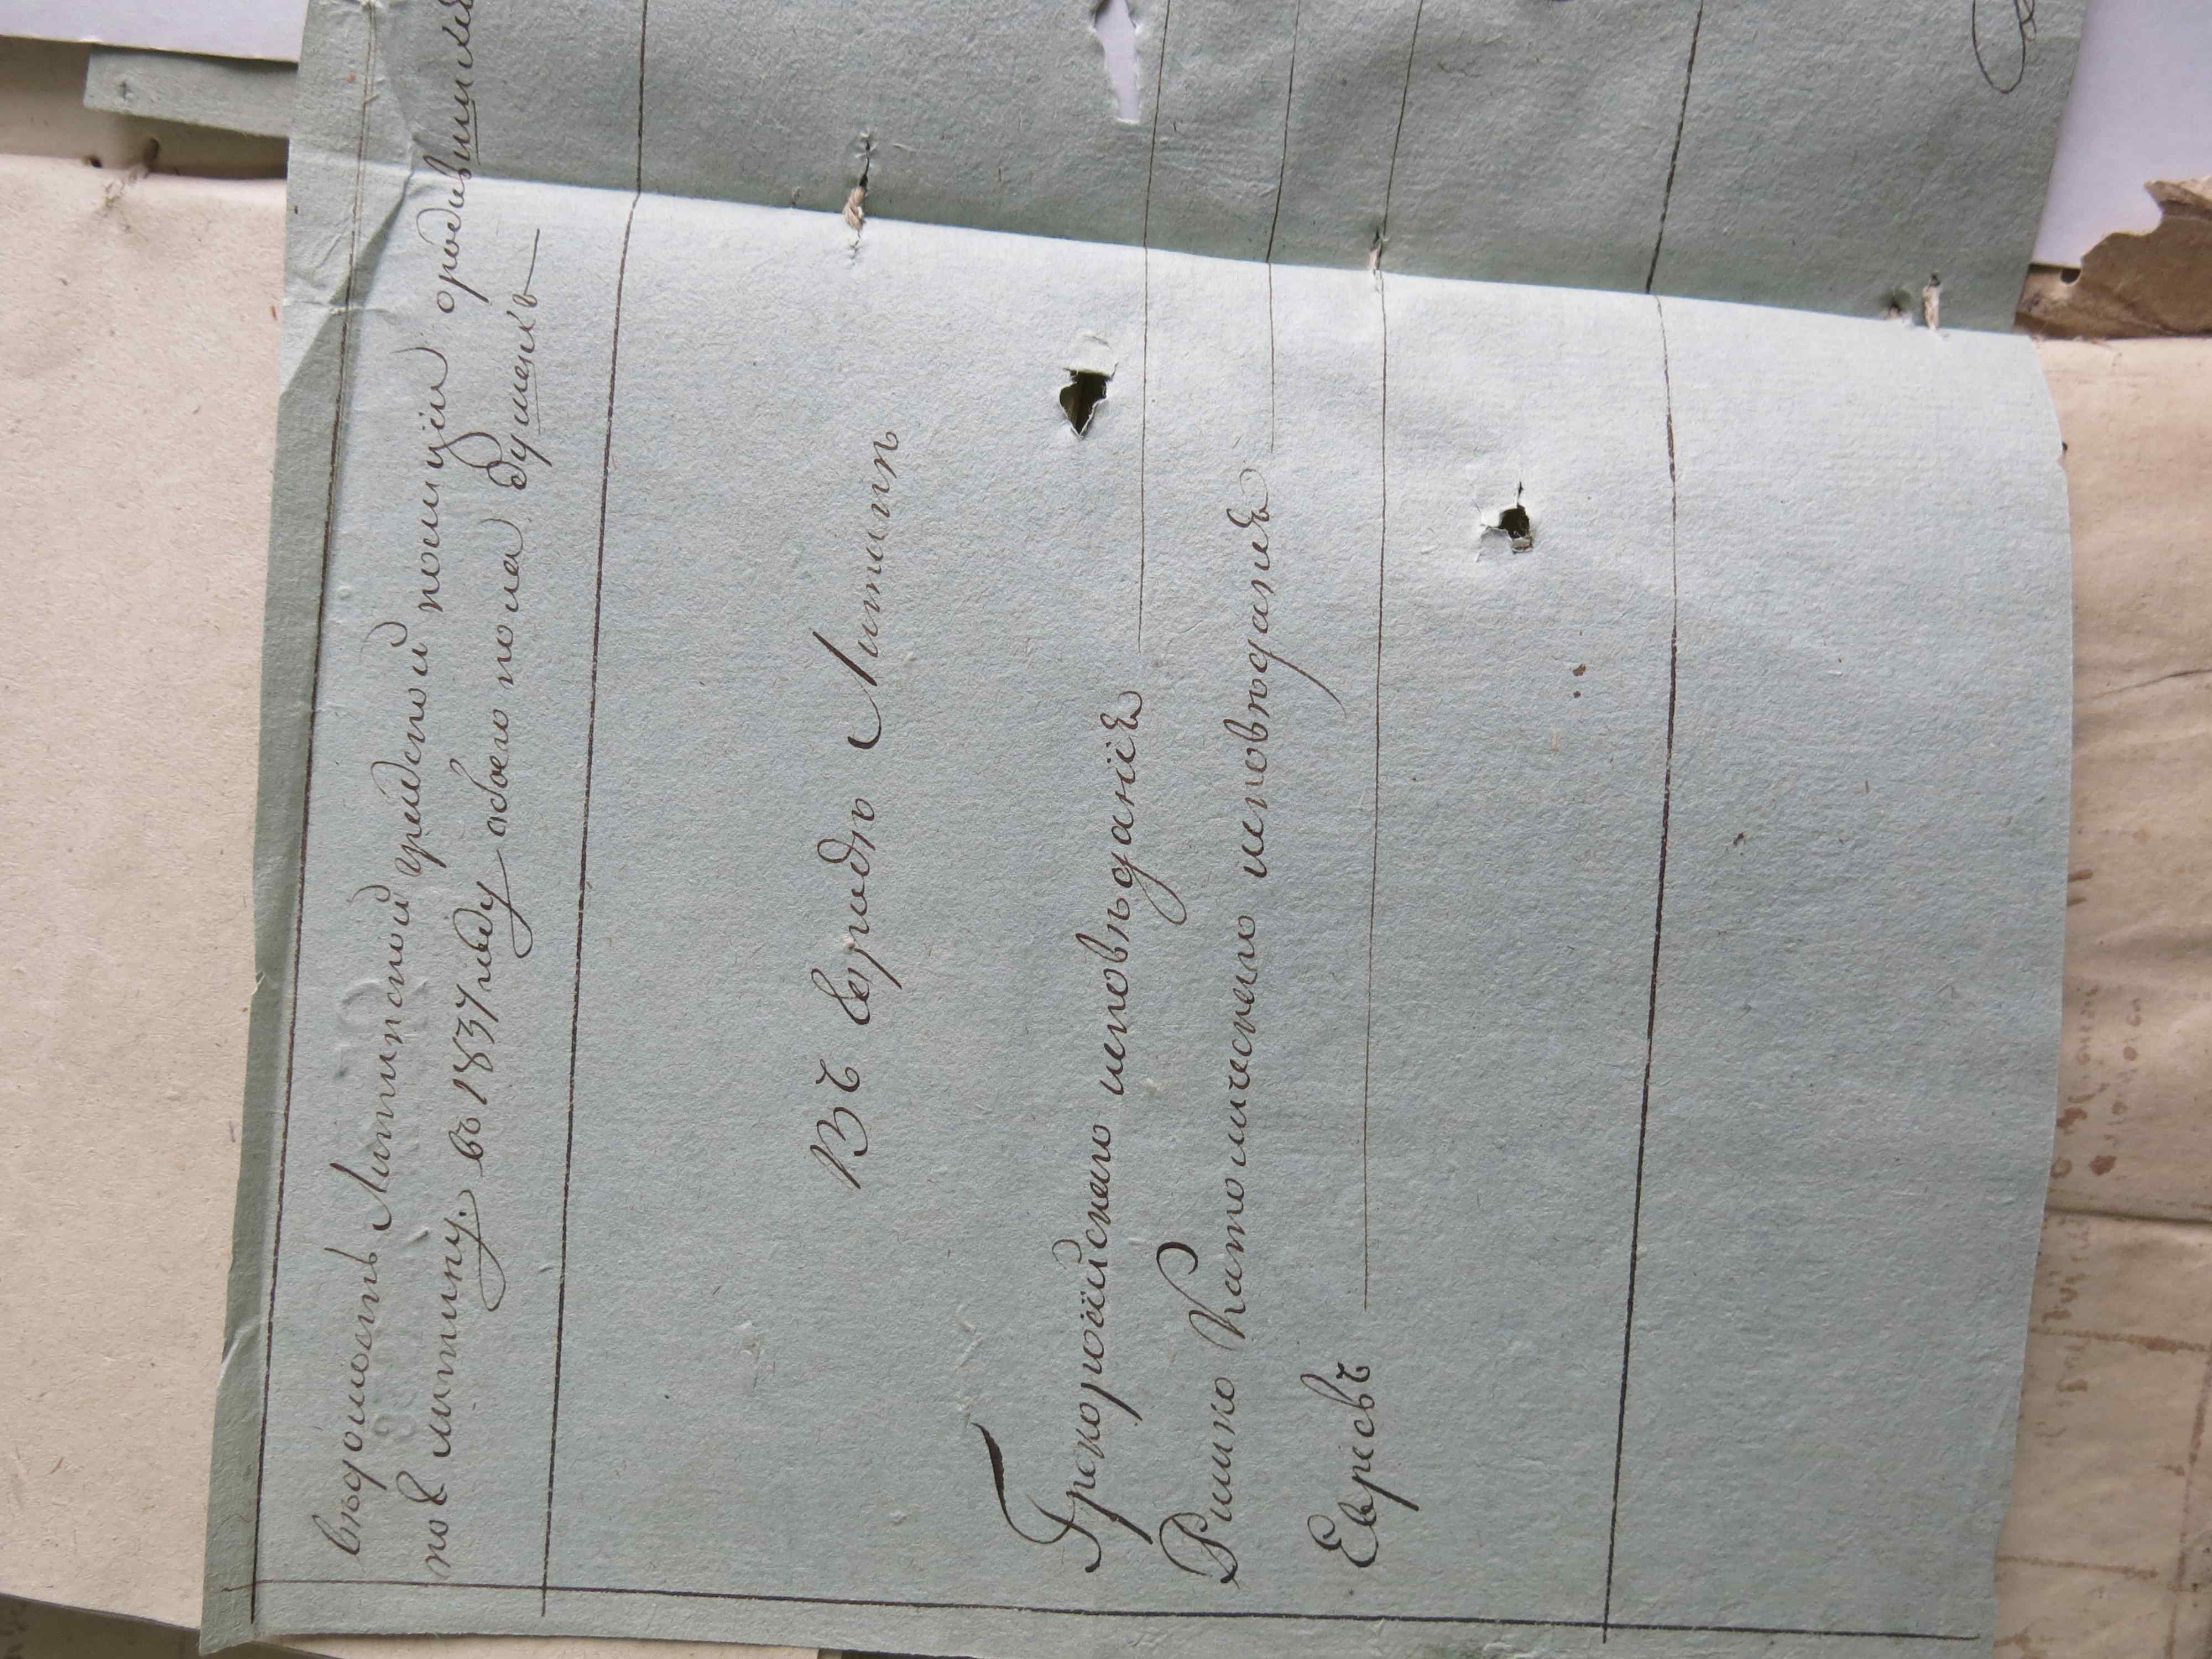 Вѣдомость Липипской градской полиціи ородив­шихся
по в липину. въ 1837 году обоего пола душекъ
Въ городѣ Липипѣ
Грекоросійскаго исповѣданія
Римко Католическаго исповѣданія
Евреевъ